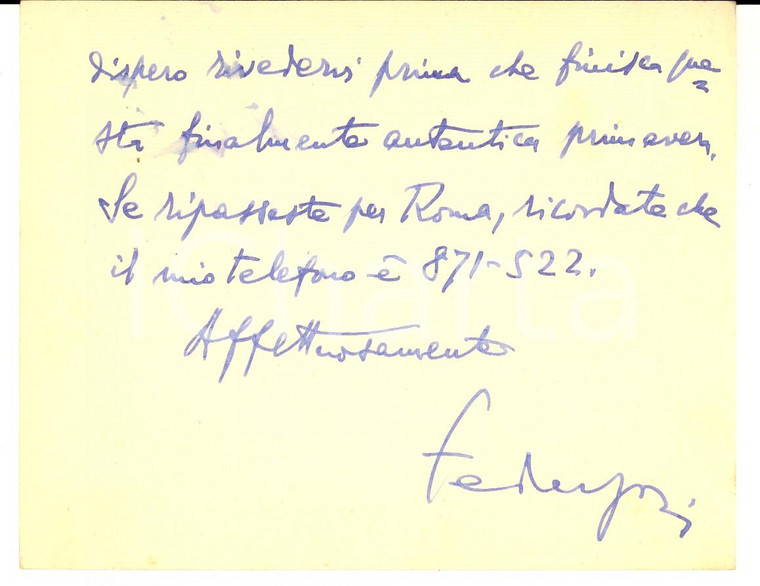 dispero rivedersi prima che finisca que=
sta finalmente autentica primavera.
Se ripassaste per Roma, ricordate che
il mio telefono è 871-522.
Affettuosamente
Federzoni
iCharta